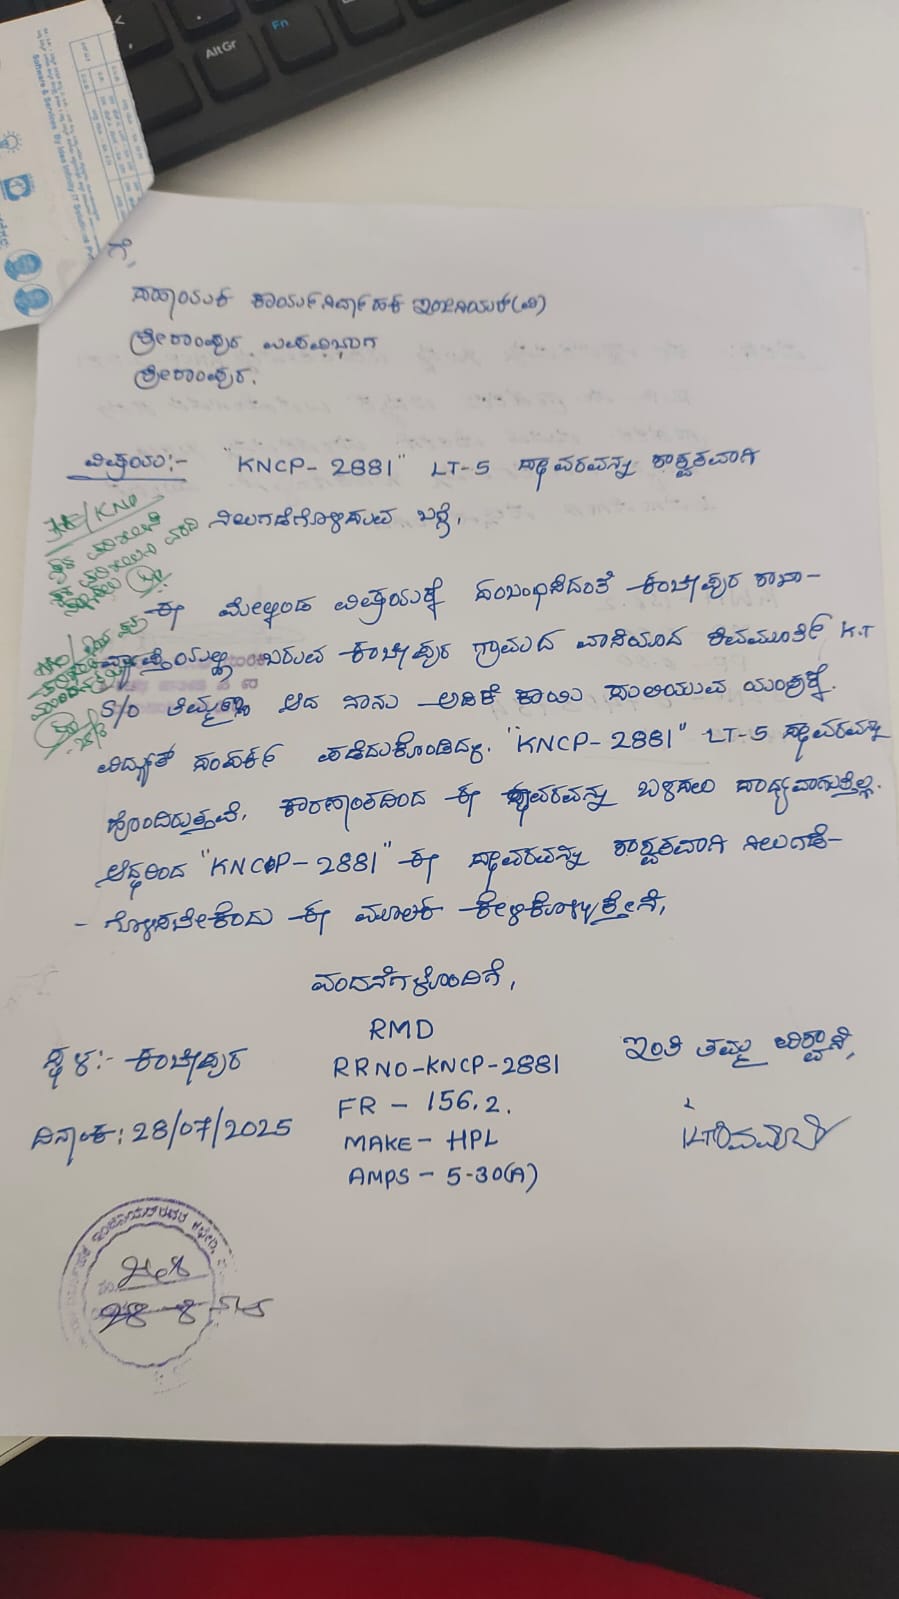 AltGr
Fn
ಗೆ,
ಸಹಾಯಕ ಕಾರ್ಯನಿರ್ವಾಹಕ ಇಂಜಿನಿಯರ್(ವಿ)
ಶ್ರೀರಾಂಪುರ ಉಪವಿಭಾಗ
ಶ್ರೀರಾಂಪುರ.
ವಿಷಯ:- "KNCP-2881" LT-5 ಸ್ಥಾವರವನ್ನು ಶಾಶ್ವತವಾಗಿ
ನಿಲುಗಡೆಗೊಳಿಸುವ ಬಗ್ಗೆ,
ಈ ಮೇಲ್ಕಂಡ ವಿಷಯಕ್ಕೆ ಸಂಬಂಧಿಸಿದಂತೆ ಕಂಚೀಪುರ ಶಾಖಾ-
ವ್ಯಾಪ್ತಿಯಲ್ಲಿ ಬರುವ ಕಂಚೀಪುರ ಗ್ರಾಮದ ವಾಸಿಯಾದ ಶಿವಮೂರ್ತಿ K.T
S/O ತಿಮ್ಮಣ್ಣ ಆದ ನಾನು ಅಡಿಕೆ ಕಾಯಿ ಸುಲಿಯುವ ಯಂತ್ರಕ್ಕೆ
ವಿದ್ಯುತ್ ಸಂಪರ್ಕ ಪಡೆದುಕೊಂಡಿದ್ದು. "KNCP-2881" LT-5 ಸ್ಥಾವರವನ್ನು
ಹೊಂದಿರುತ್ತವೆ. ಕಾರಣಾಂತರದಿಂದ ಈ ಸ್ಥಾವರವನ್ನು ಬಳಸಲು ಸಾಧ್ಯವಾಗುತ್ತಿಲ್ಲ.
ಆದ್ದರಿಂದ "KNCP-2881" ಈ ಸ್ಥಾವರವನ್ನು ಶಾಶ್ವತವಾಗಿ ನಿಲುಗಡೆ-
- ಗೊಳಿಸಬೇಕೆಂದು ಈ ಮೂಲಕ ಕೇಳಿಕೊಳ್ಳುತ್ತೇನೆ,
ವಂದನೆಗಳೊಂದಿಗೆ,
ಸ್ಥಳ:- ಕಂಚೀಪುರ
ದಿನಾಂಕ: 28/07/2025
RMD
RRNO-KNCP-2881
FR - 156.2.
MAKE - HPL
AMPS - 5-30(A)
ಇಂತಿ ತಮ್ಮ ವಿಶ್ವಾಸಿ,